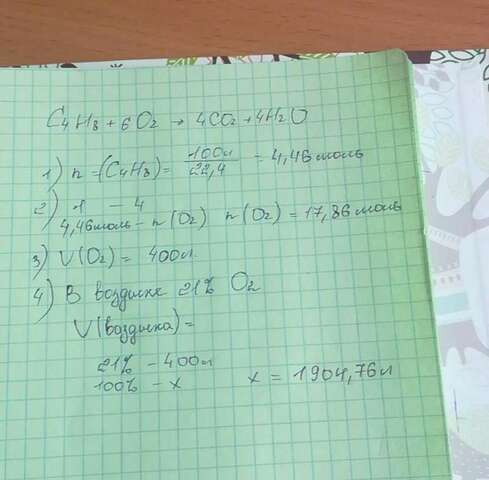 C4H8 + 6O2 → 4CO2 + 4H2O
1) n = (C4H8) = 100л / 22,4 = 4,46 моль
2) 1 - 4
4,46 моль - n(O2) n(O2) = 17,86 моль
3) V(O2) = 400 л.
4) В воздухе 21% O2
V(воздуха) =
21% - 400л
100% - x x = 1904,76 л